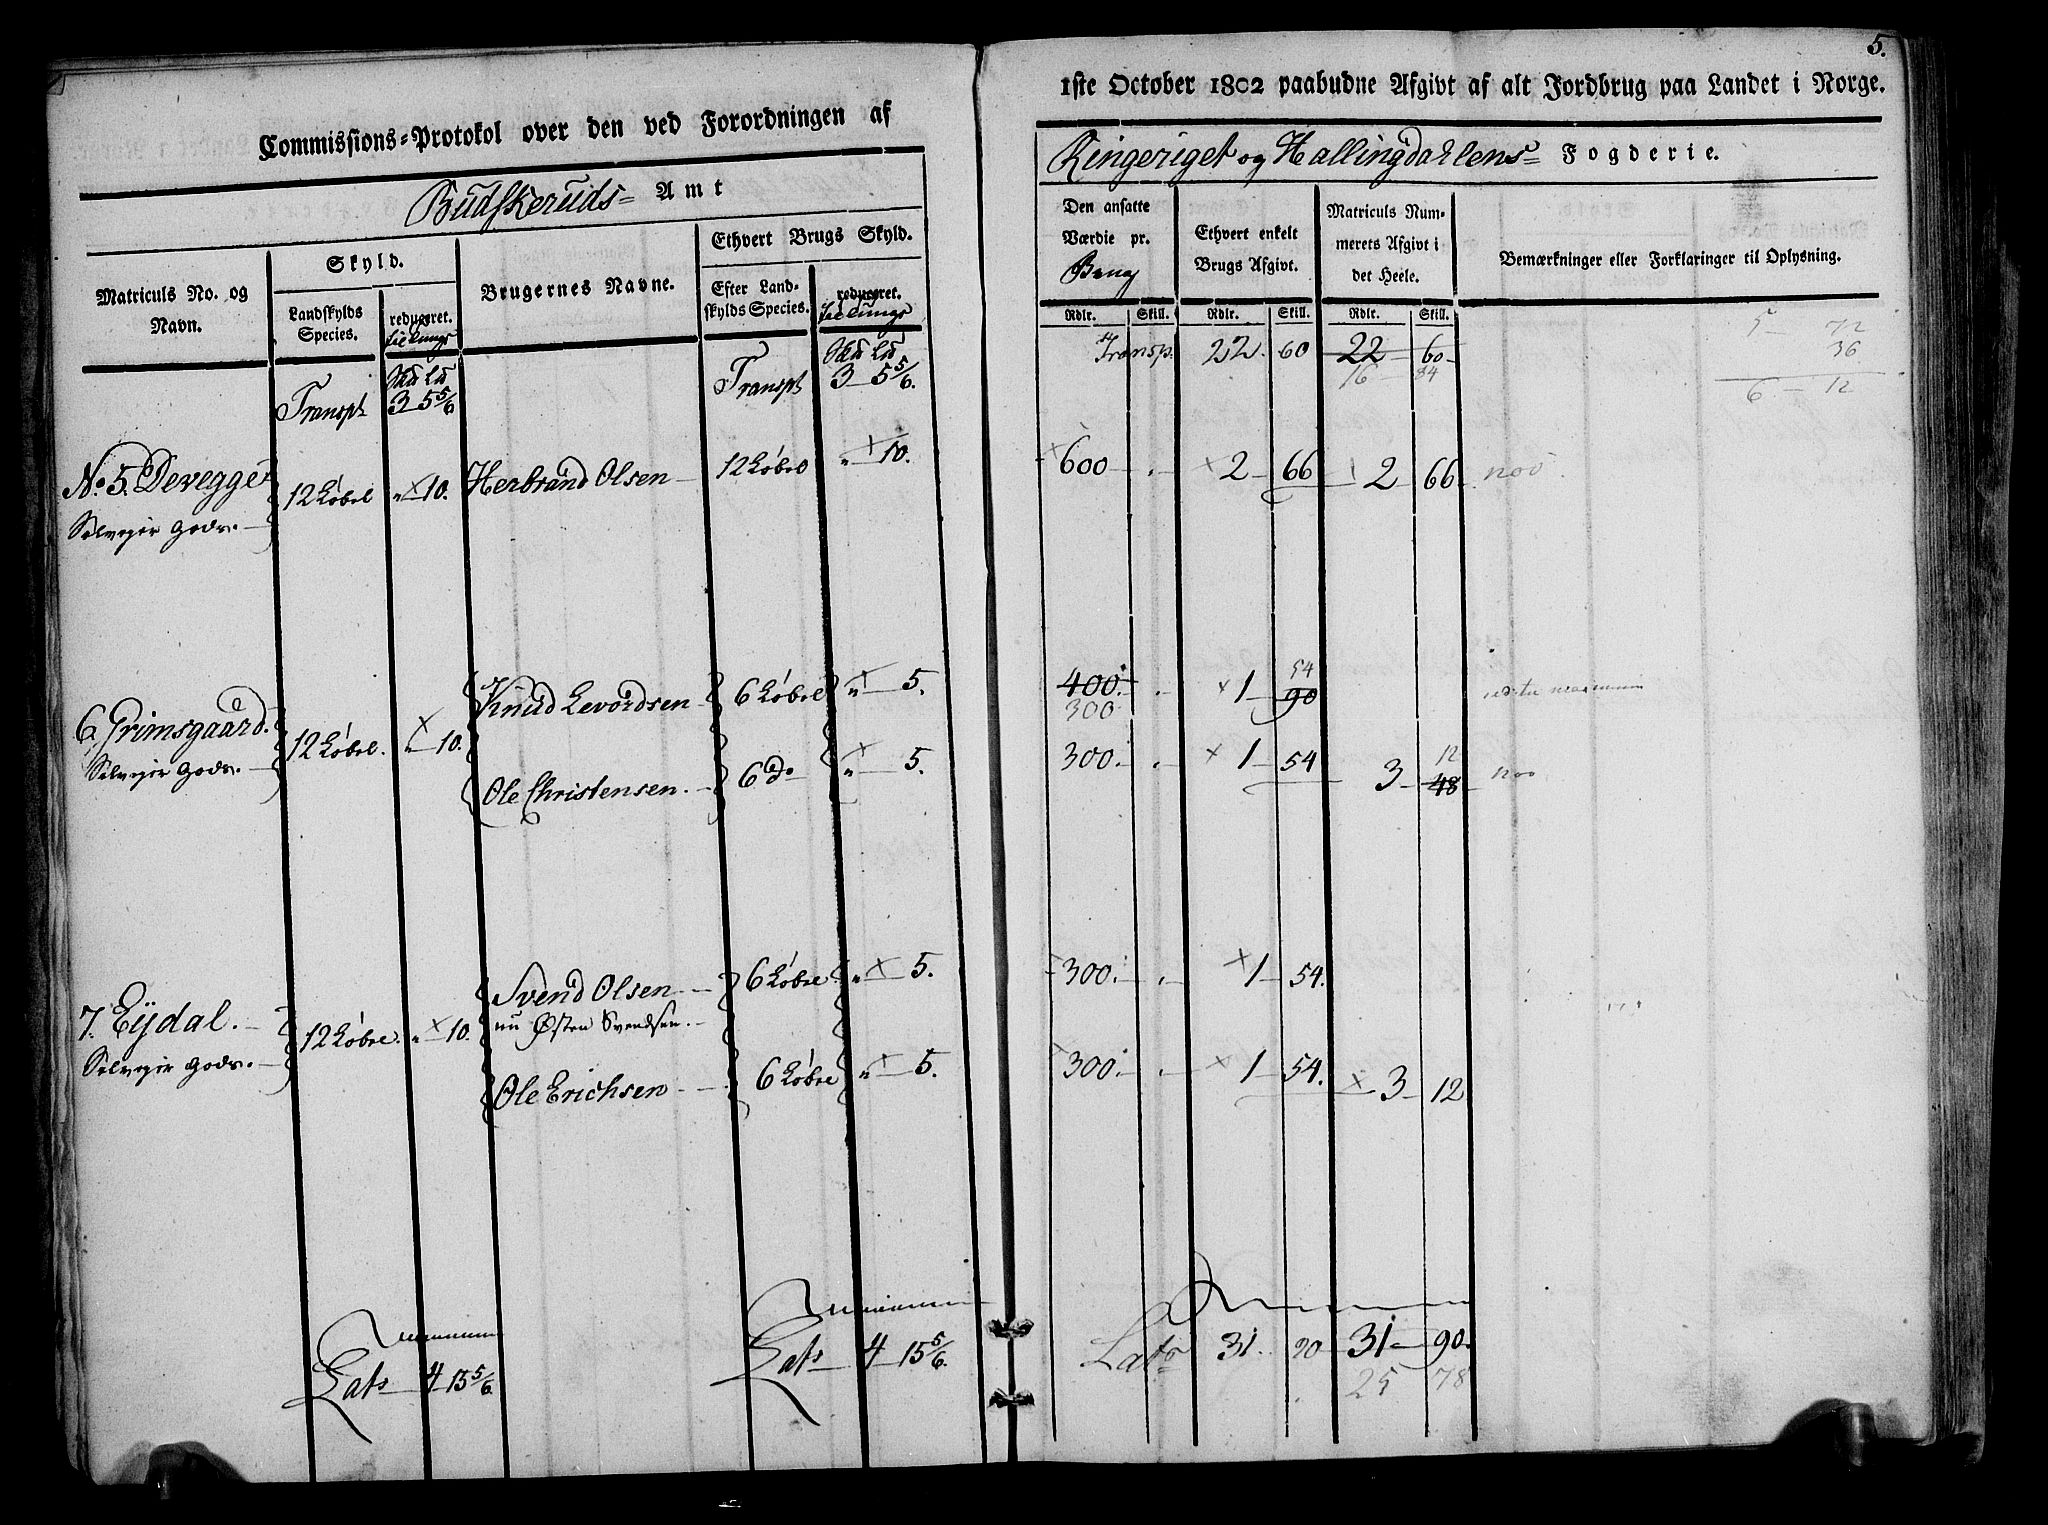 5.
Commissions-Protokol over den ved Forordningen af
1ste October 1802 paabudne Afgivt af alt Jordbrug paa Landet i Norge.
Budskeruds- Amt
Ringeriget og Hallingdahlens- Fogderie.
Matriculs No. og Navn.
Skyld.
Landskylds Species.
reduceret.
Brugernes Navne.
Ethvert Brugs Skyld.
Efter Landskylds Species.
reduceret.
Den ansatte Værdie pr. Brug
Ethvert enkelt Brugs Afgivt.
Matriculs Nummerets Afgivt i det Heele.
Bemærkninger eller Forklaringer til Oplysning.
Rdlr. Skill. Rdlr. Skill. Rdlr. Skill.
Transpt 3 5 5/6 Transpt 3 5 5/6. Transp. 22. 60 22 60
16 84
5 - 72
36
6 - 12
No. 5. Devegge 12 Løbol 10. Herbrand Olsen 12 Løbol 10. 600 2 66 2 66
Selveyer Gods.
6. Grimsgaard. 12 Løbol. 10. Knud Levordsen 6 Løbol 5. 400. 1 90
300 54
Selveyer Gods. Ole Christensen. 6 do 5. 300. 1 54 3 48
12
7. Eydal. 12 Løbol. 10. Svend Olsen 6 Løbol 5. 300. 1 54.
nu Østen Svendsen.
Selveyer Gods. Ole Erichsen 6 Løbol 5. 300. 1 54. 3 12
Lats 4 15 5/6. Lats 4 15 5/6. Lats 31. 20 31 90.
25 78